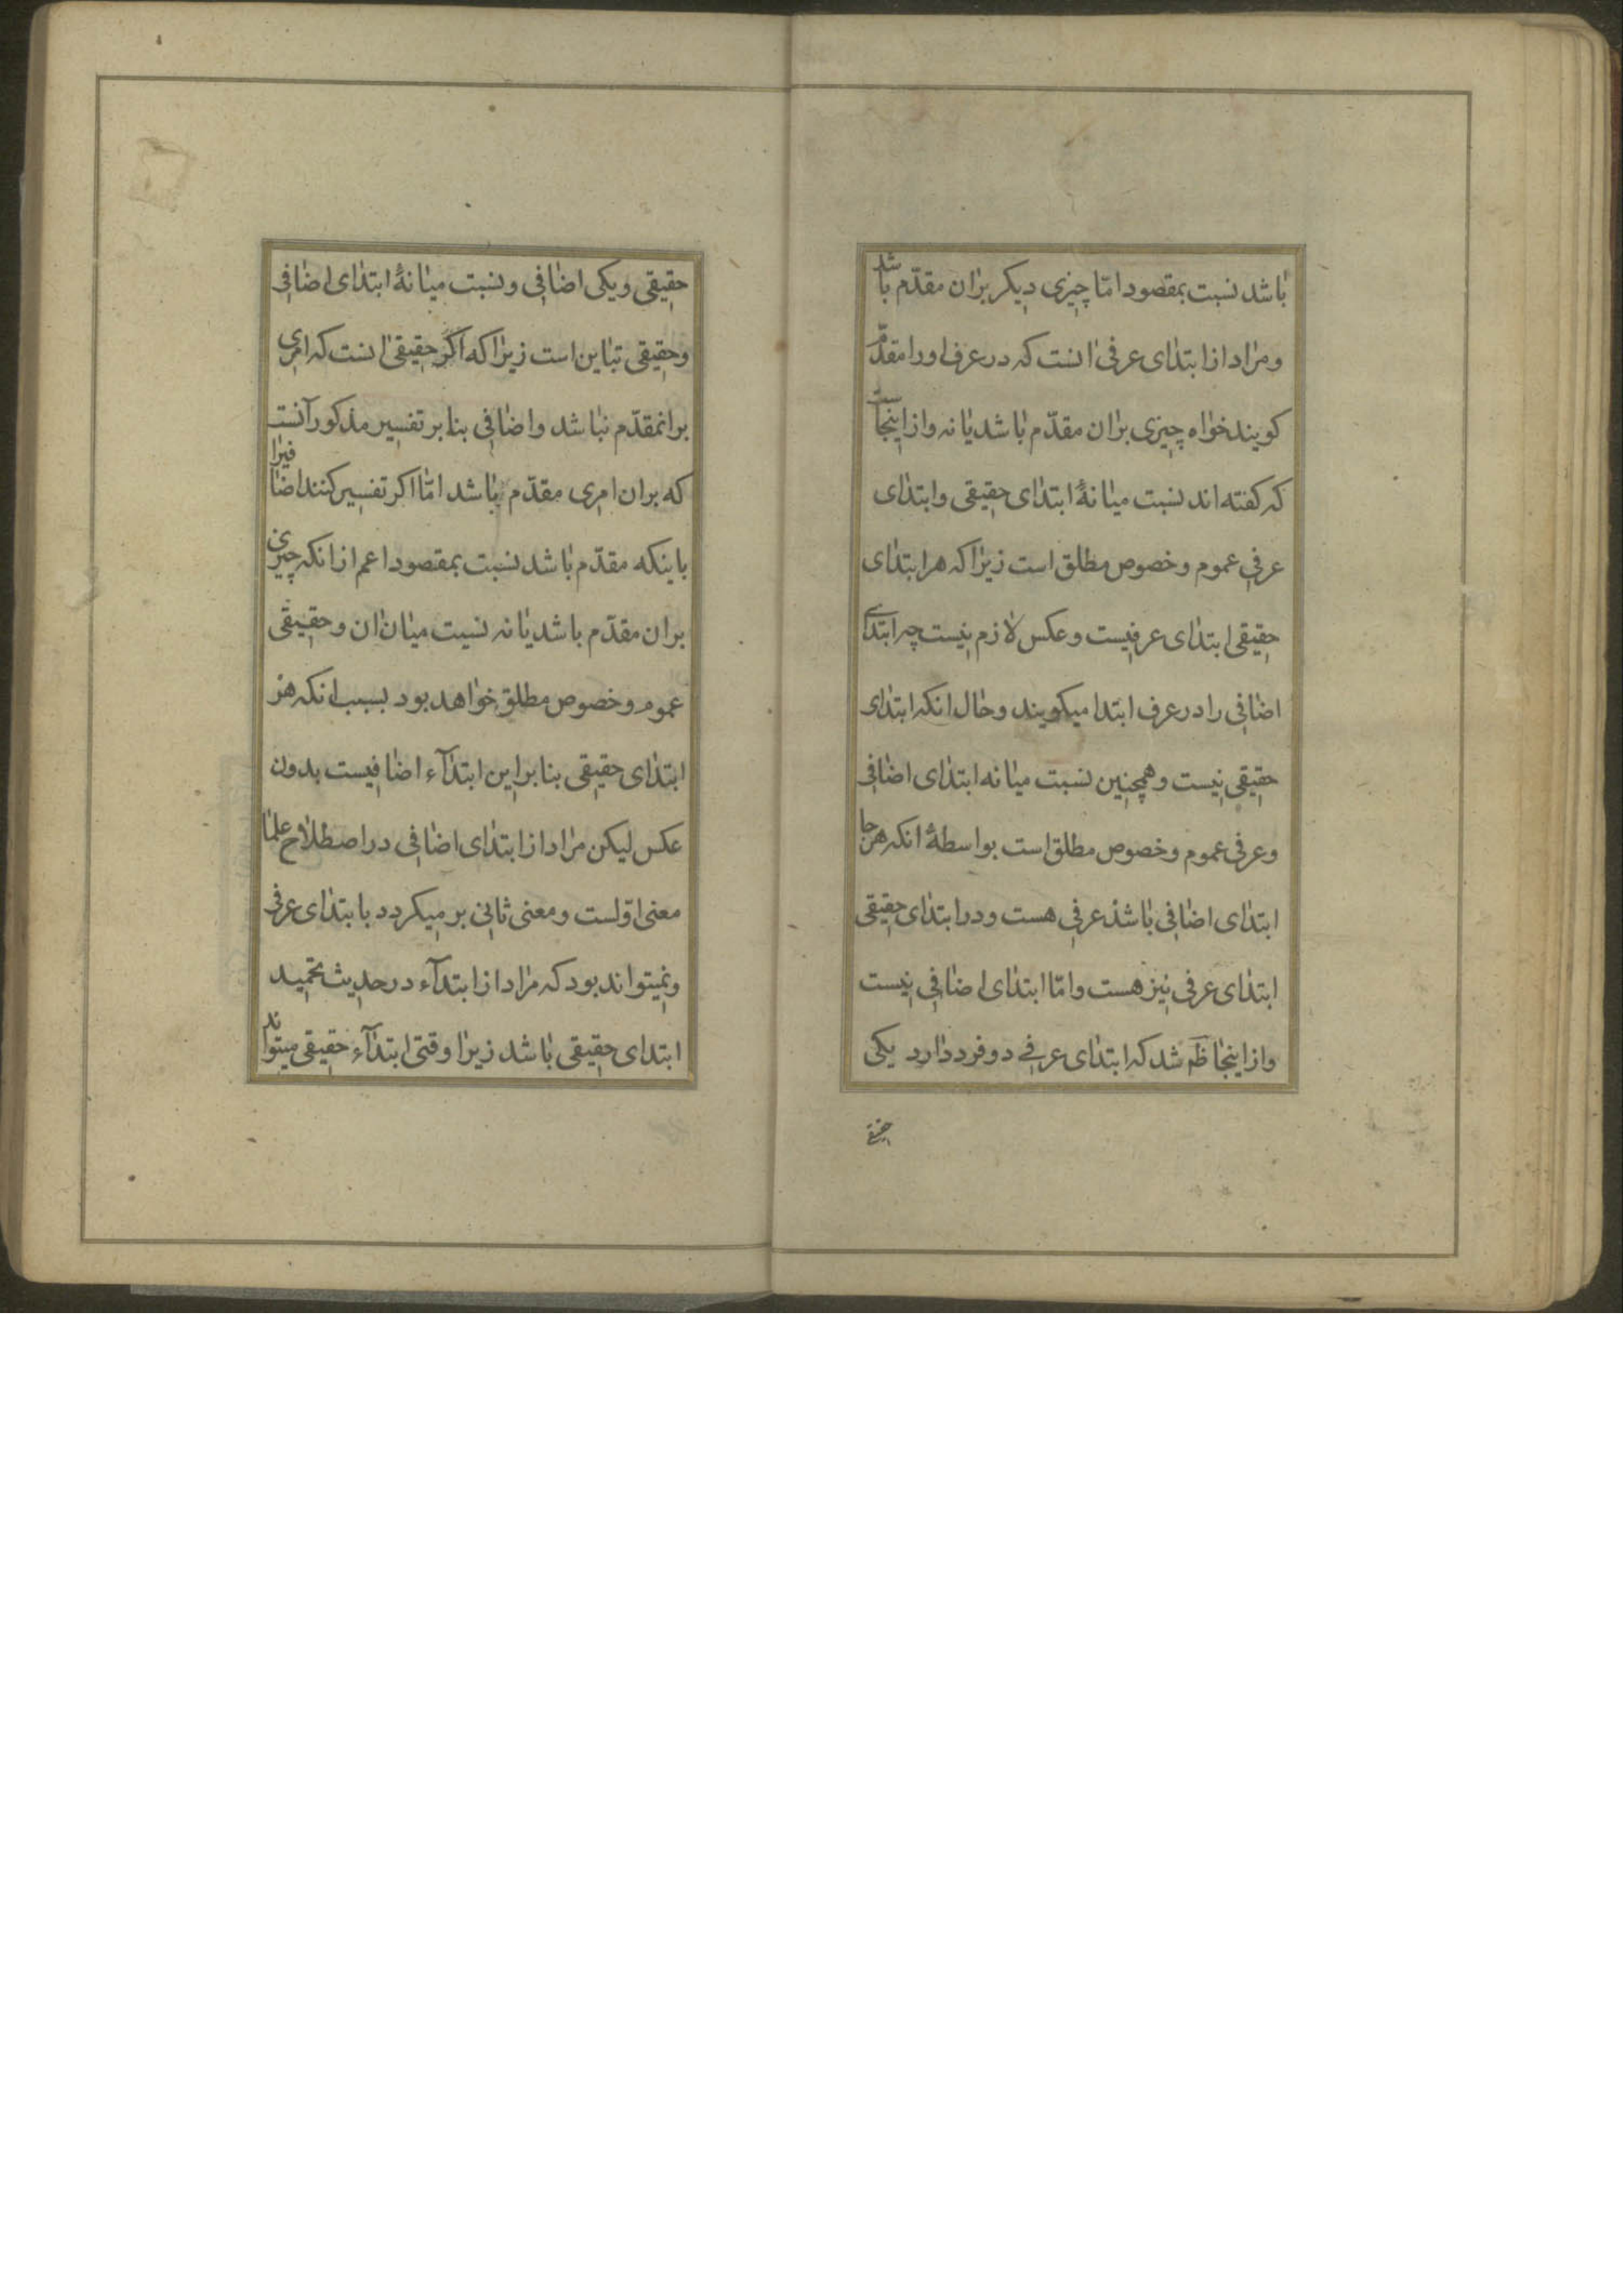 باشد نسبت بمقصود امّا چیزی دیکر بران مقدّم باشد
ومراد از ابتدای عرفی انست که در عرف اورا مقدّم
کویند خواه چیزی بران مقدّم باشد یا نه واز اینجاست
که کفته اند نسبت میانهٔ ابتدای حقیقی وابتدای
عرفی عموم وخصوص مطلق است زیرا که هر ابتدای
حقیقی ابتدای عرفیست وعکس لازم نیست چه ابتدای
اضافی را در عرف ابتدا میکویند وحال انکه ابتدای
حقیقی نیست وهمچنین نسبت میانه ابتدای اضافی
وعرفی عموم وخصوص مطلق است بواسطهٔ انکه هر جا
ابتدای اضافی باشد عرفی هست ودر ابتدای حقیقی
ابتدای عرفی نیز هست وامّا ابتدای اضافی نیست
واز اینجا ظَه شد که ابتدای عرفی دو فرد دارد یکی
حقیقی
حقیقی ویکی اضافی ونسبت میانهٔ ابتدای اضافی
وحقیقی تباین است زیرا که اکر حقیقی انست که امری
برانمقدّم نباشد واضافی بنا بر تفسیر مذکور آنست
که بران امری مقدّم باشد امّا اکر تفسیر کنند اضافیرا
باینکه مقدّم باشد نسبت بمقصود اعم از انکه چیزی
بران مقدّم باشد یا نه نسبت میان ان وحقیقی
عموم وخصوص مطلق خواهد بود بسبب انکه هر
ابتدای حقیقی بنا براین ابتدآء اضافیست بدون
عکس لیکن مراد از ابتدای اضافی در اصطلاح علما
معنی اوّلست ومعنی ثانی بر میکردد با بتدای عرفی
ونمیتواند بود که مراد از ابتدآء در حدیث تحمید
ابتدای حقیقی باشد زیرا وقتی ابتدآء حقیقی میتواند